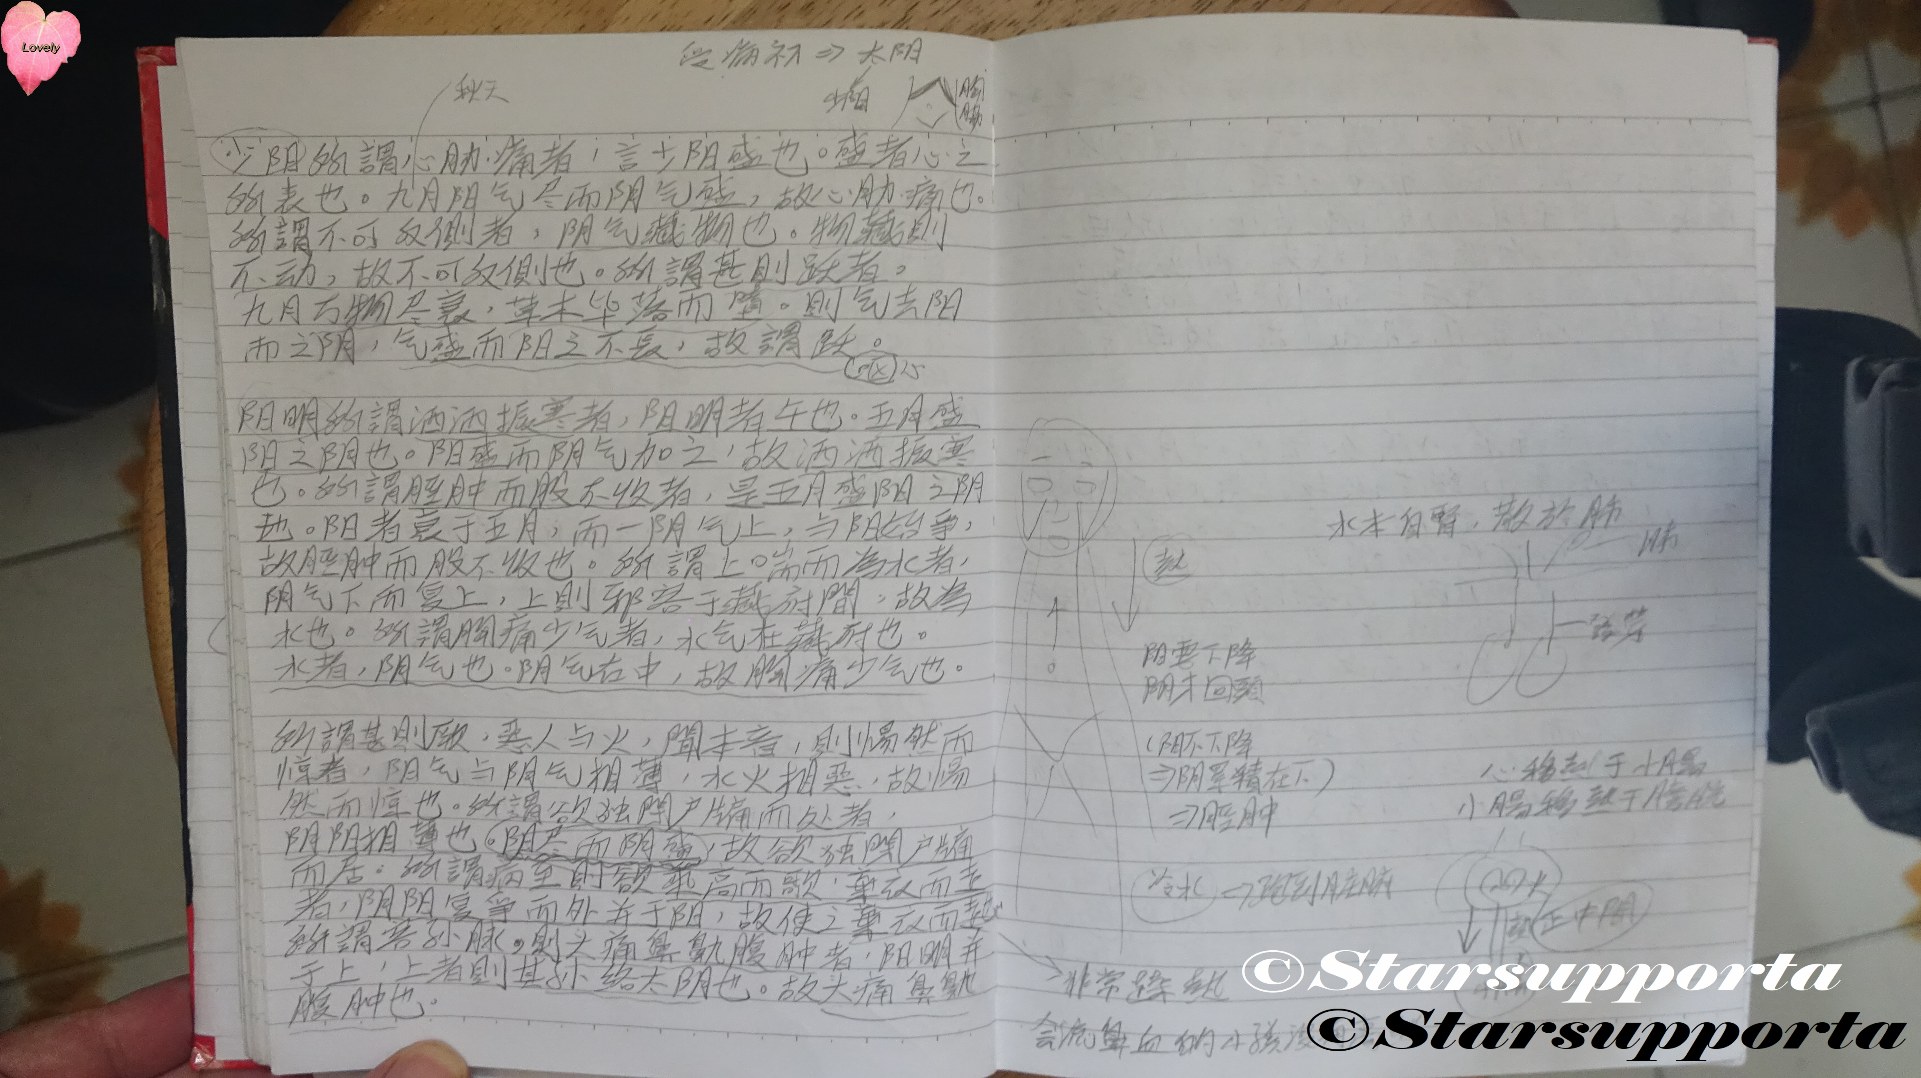 Lovely
受病初⇒太阴
秋天
少阳
胸
少阳所謂心肋痛者，言少阳盛也。盛者心之
所表也。九月阳气尽而阴气盛，故心肋痛也。
所謂不可反側者，阴气藏物也。物藏則
不动，故不可反側也。所謂甚則跃者。
九月万物尽衰，草木毕落而墮。則气去阳
而之阴，气盛而阳之下長，故謂跃。
阳明所謂洒洒振寒者，阳明者午也。五月盛
阳之阴也。阳盛而阴气加之，故洒洒振寒
也。所謂脛肿而股不收者，是五月盛阳之阴
也。阳者衰于五月，而一阴气上，与阳始爭，
故脛肿而股不收也。所謂上喘而為水者，
阴气下而复上，上則邪客于藏府間，故為
水也。所謂胸痛少气者，水气在藏府也。
水者，阴气也。阴气在中，故胸痛少气也。
所謂甚則厥，恶人与火，聞木音，則惕然而
惊者，阳气与阴气相薄，水火相恶，故惕
然而惊也。所謂欲独閉户牖而处者，
阴阳相薄也。阳尽而阴盛，故欲独閉户牖
而居。所謂病至則欲乘高而歌，棄衣而走
者，阴阳复爭而外并于阳，故使之棄衣而走。
所謂客孙脉，則头痛鼻鼽腹肿者，阳明并
于上，上者則其孙络太阴也。故头痛鼻鼽
腹肿也。
水本自腎，散於肺
肺
熱
阳要下降
阴才回頭
(阳不下降
⇒阴累積在下)
⇒脛肿
心移熱于小腸
小腸移熱于膀胱
冷水⇒跑到脏腑
正中間
非常躁熱
会流鼻血的小孩
©Starsupporta
©Starsupporta